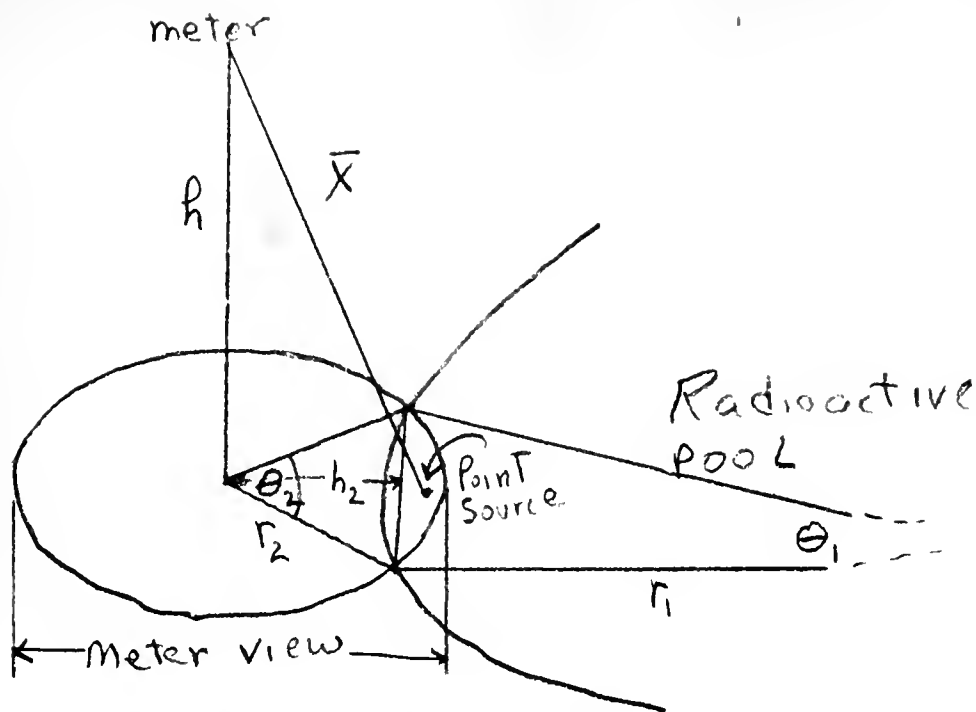 meter
X̄
h
Radioactive
pool
Point
Source
θ₂
h₂
r₂
θ₁
r₁
Meter view